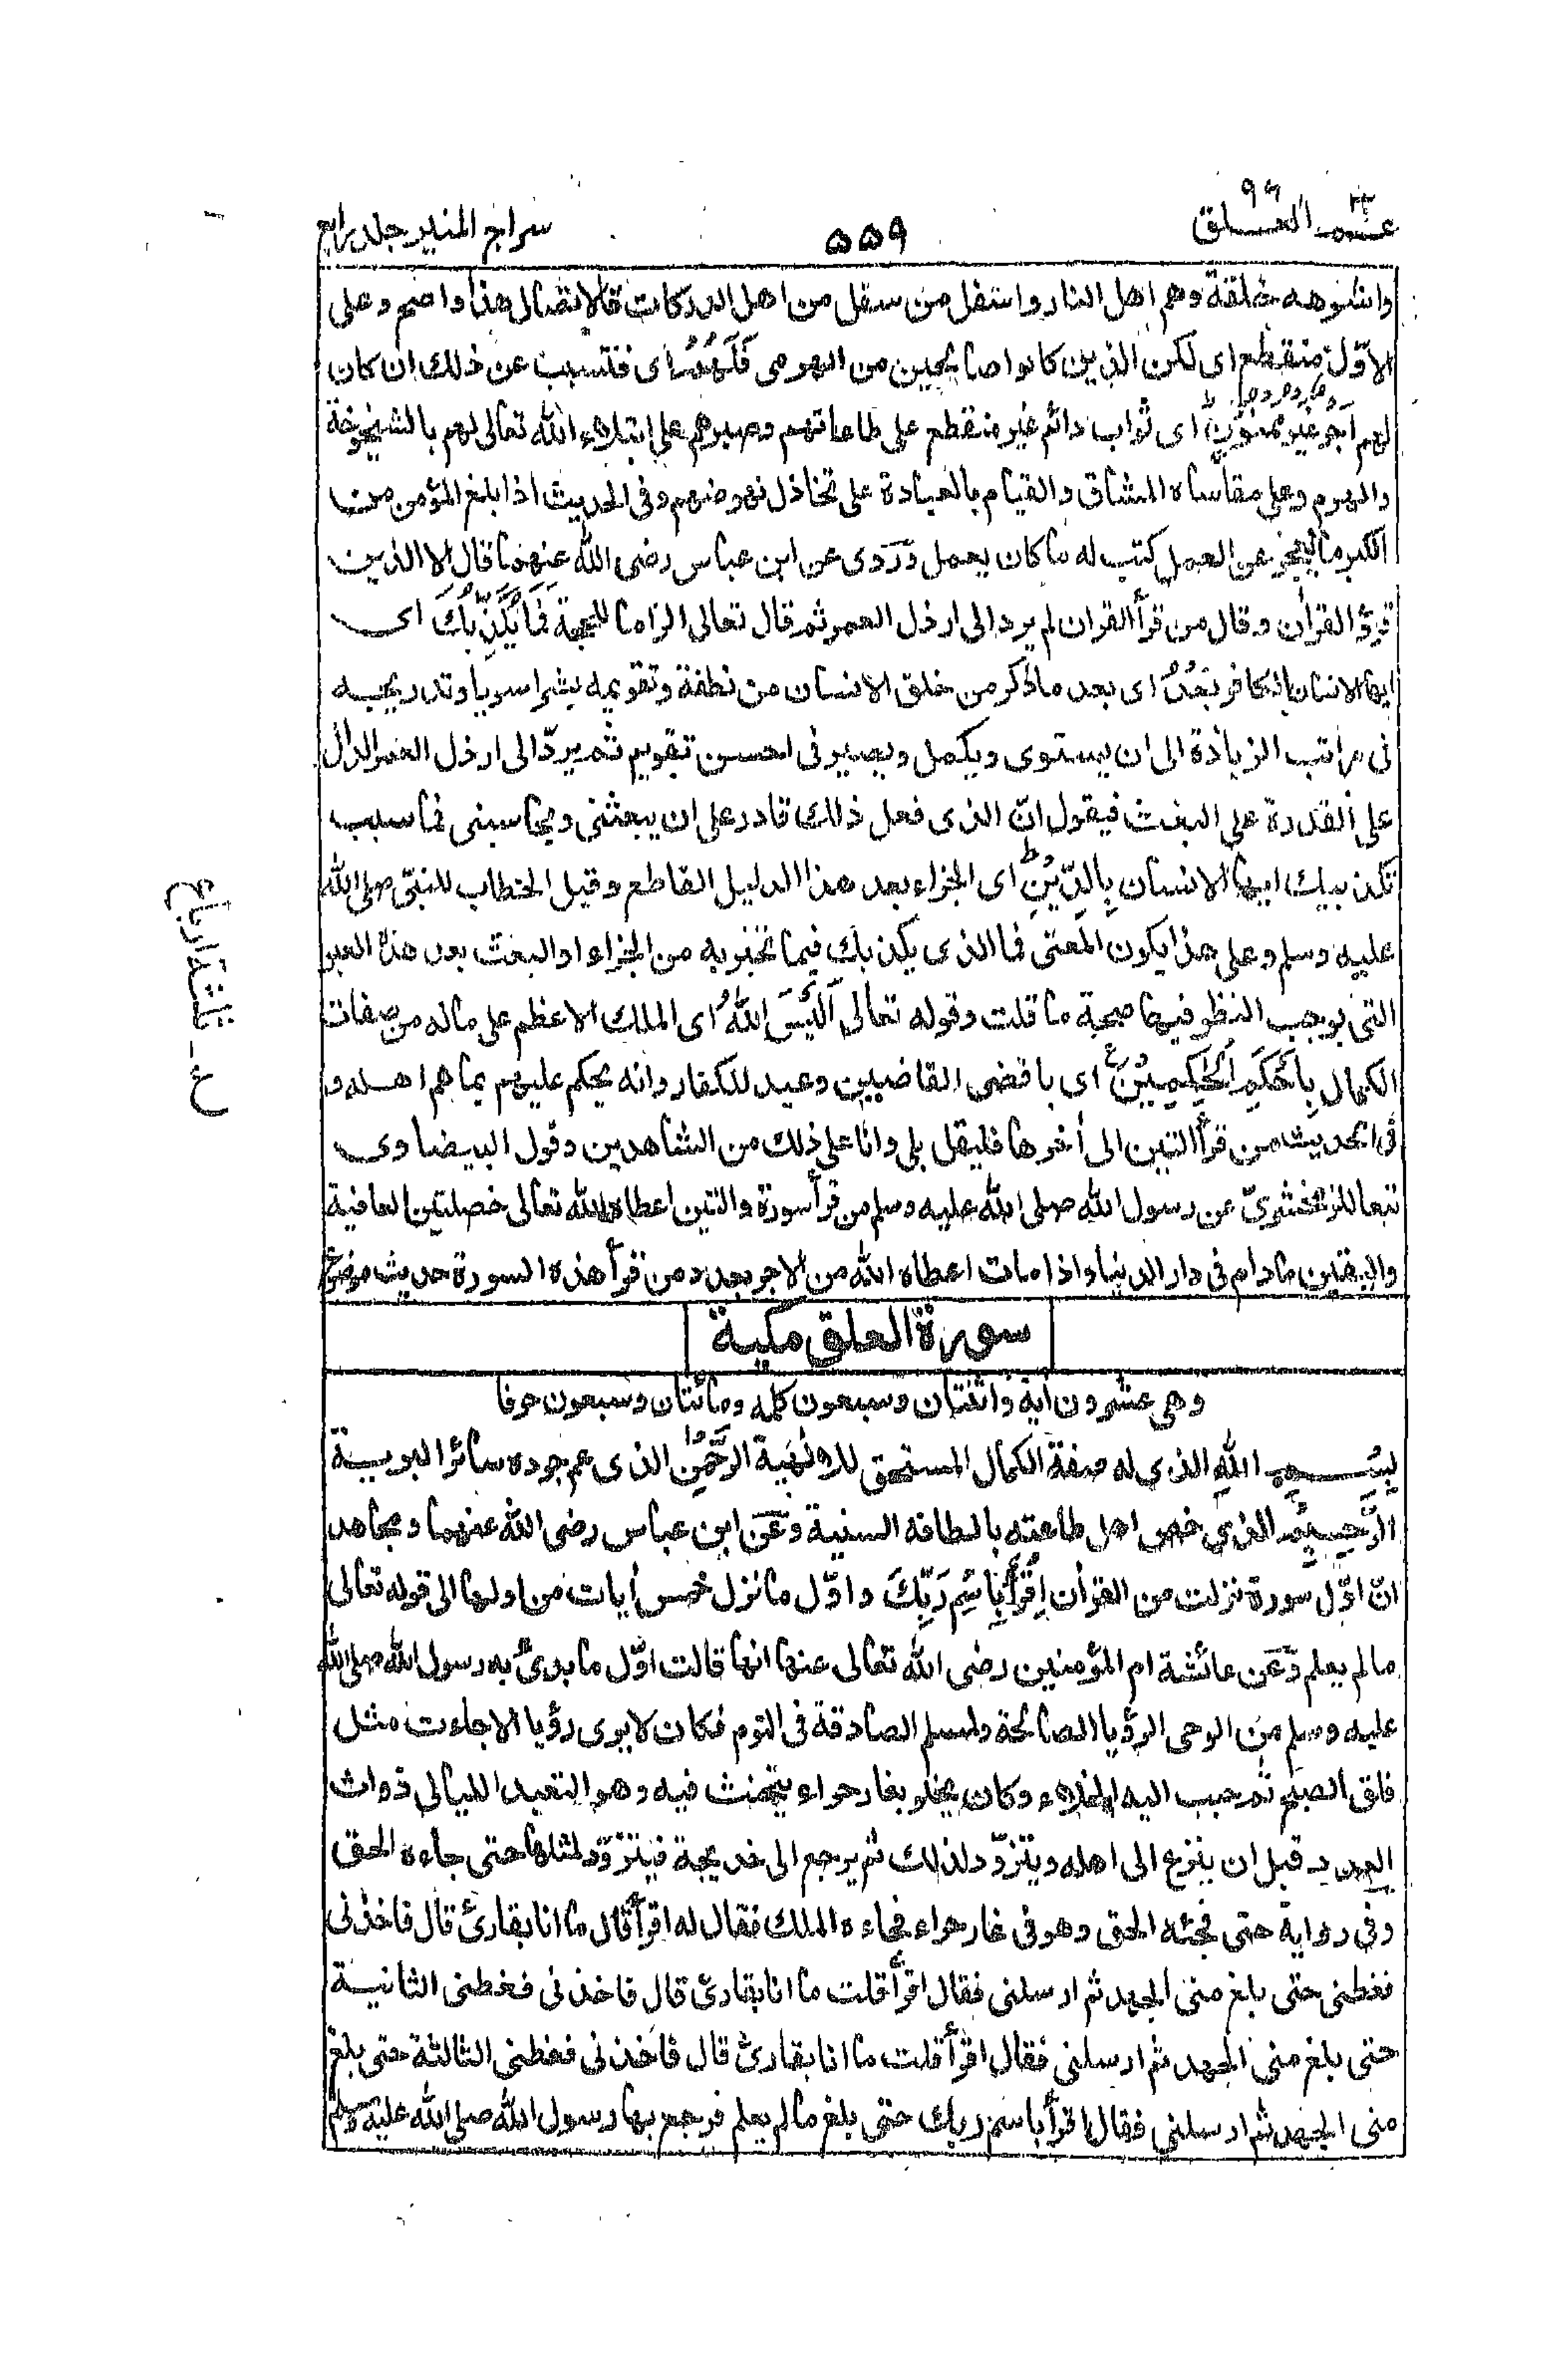 عم العلق ٩٦
٥٥٩
سراج المنير جلد رابع
واشوهه خلقة وهم اهل النار واسفل من سفل من اهل الدركات فالاتصال هذا واضح وعلى
الاوّل منقطع اى لكن الذين كانوا صالحين من الهرمى فَلَهُمْ اى فتسبب عن ذلك ان كان
لهم اَجر غير ممنون اى ثواب دائم غير منقطع على طاعاتهم وصبرهم على ابتلاء الله تعالى لهم بالشيخوخة
والهرم وعلى مقاساة المشاق والقيام بالعبادة على تخاذل نهوضهم وفى الحديث اذا بلغ المؤمن من
الكبر ما يعجز عن العمل كتب له ما كان يعمل وَرَوى عن ابن عباس رضى الله عنهما قال الا الذين
قرؤ القرأن وقال من قرأ القران لم يرد الى ارذل العمر ثم قال تعالى الزاما للحجة فَمَا يُكَذِّبُكَ اى
ايها الانسان الكافر بَعْدُ اى بعد ما ذكر من خلق الانسان من نطفة وتقويمه بشرا سويا وتدريجيه
فى مراتب الزيادة الى ان يستوى ويكمل ويصير فى احسن تقويم ثم يردّ الى ارذل العمر الدال
على القدرة على البعث فيقول انّ الذى فعل ذلك قادر على ان يبعثنى ويحاسبنى فما سبب
تكذيبك ايها الانسان بِالدِّيْنِ اى الجزاء بعد هذا الدليل القاطع وقيل الخطاب للنبىّ صلى الله
عليه وسلم وعلى هذا يكون المعنى فما الذى يكذبك فيما تخبر به من الجزاء او البعث بعد هذه العبر
التى يوجب النظر فيها صحة ما قلت وقوله تعالى اَلَيْسَ اللّٰهُ اى الملك الاعظم على ماله من صفات
الكمال بِاَحْكَمِ الْحٰكِمِيْنَ اى باقضى القاضيين وعيد للكفار وانه يحكم عليهم بما هم اهله و
فى الحديث من قرأ التين الى أخرها فليقل بلى وانا على ذلك من الشاهدين وقول البيضاوى
تبعا للزمخشرىّ عن رسول الله صلى الله عليه وسلم من قرأ سورة والتين اعطاه الله تعالى خصلتين العافية
واليقين مادام فى دار الدنيا واذا مات اعطاه الله من الاجر بعدد من قرأ هذه السورة حديث موضوع
سورة العلق مكية
وهى عشرون اية واثنتان وسبعون كلمه ومائتان وسبعون حرفا
بِسْمِ اللهِ الذى له صفة الكمال المستحق للالٰهية الرَّحْمٰنِ الذى عم جوده سائر البرية
الرَّحِيْمِ الذى خص اهل طاعته بالطافه السنية وَعَن ابن عباس رضى الله عنهما ومجاهد
انّ اوّل سورة نزلت من القرأن اِقْرَأْ بِاسْمِ رَبِّكَ واوّل ما نزل خمس أيات من اولها الى قوله تعالى
مالم يعلم وَعَن عائشة ام المؤمنين رضى الله تعالى عنها انها قالت اوّل ما بدئ به رسول الله صلى الله
عليه وسلم من الوحى الرؤيا الصالحة ولمسلم الصادقة فى النوم فكان لايرى رؤيا الاجاءت مثل
فلق الصبح ثم حبب اليه الخلاء وكان يخلو بغار حراء يتحنث فيه وهو التعبد الليالى ذوات
العدد قبل ان ينزع الى اهله ويتزوّد لذلك ثم يرجع الى خديجة فيتزوّد لمثلها حتى جاءه الحق
وفى رواية حتى فجئه الحق وهو فى غار حراء فجاءه الملك فقال له اقرأ قال ما انا بقارئ قال فاخذنى
فغطنى حتى بلغ منى الجهد ثم ارسلنى فقال اقرأ قلت ما انا بقارئ قال فاخذنى فغطنى الثانية
حتى بلغ منى الجهد ثم ارسلنى فقال اقرأ قلت ما انا بقارئ قال فاخذنى فغطنى الثالثة حتى بلغ
منى الجهد ثم ارسلنى فقال اقرأ باسم ربك حتى بلغ مالم يعلم فرجع بها رسول الله صلى الله عليه وسلم